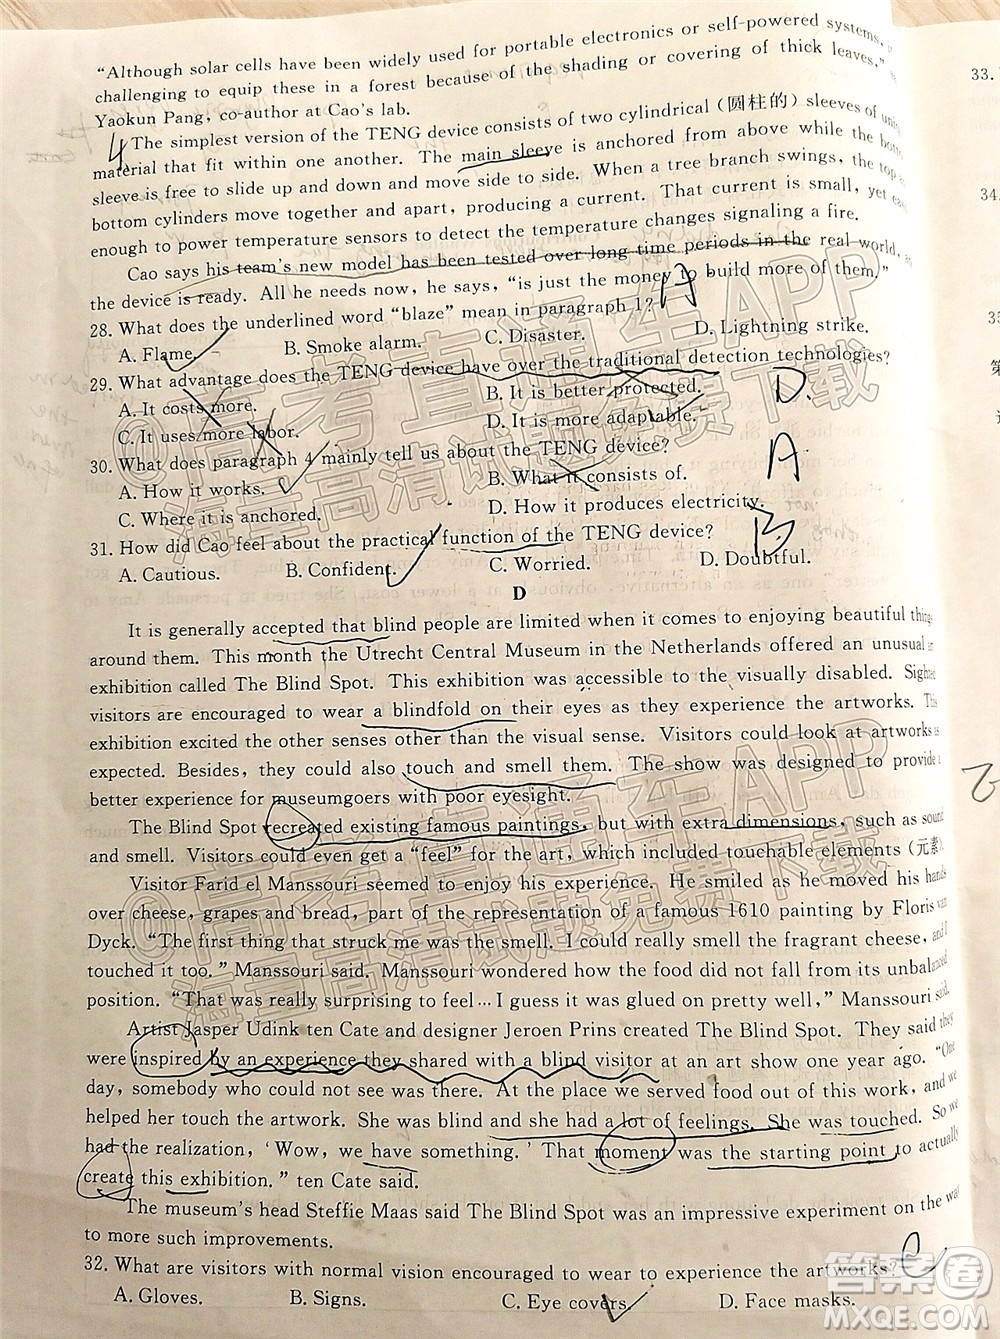 “Although solar cells have been widely used for portable electronics or self-powered systems,
challenging to equip these in a forest because of the shading or covering of thick leaves,”
Yaokun Pang, co-author at Cao's lab.
4 The simplest version of the TENG device consists of two cylindrical (圆柱的) sleeves of
material that fit within one another. The main sleeve is anchored from above while the
sleeve is free to slide up and down and move side to side. When a tree branch swings, the top
bottom cylinders move together and apart, producing a current. That current is small, yet
enough to power temperature sensors to detect the temperature changes signaling a fire.
Cao says his team's new model has been tested over long time periods in the real world,
the device is ready. All he needs now, he says, “is just the money to build more of them.”
28. What does the underlined word “blaze” mean in paragraph 1? A
A. Flame. B. Smoke alarm. C. Disaster. D. Lightning strike.
29. What advantage does the TENG device have over the traditional detection technologies?
A. It costs more. B. It is better protected. D.
C. It uses more labor. D. It is more adaptable.
30. What does paragraph 4 mainly tell us about the TENG device? A
A. How it works. B. What it consists of.
C. Where it is anchored. D. How it produces electricity.
31. How did Cao feel about the practical function of the TENG device? B
A. Cautious. B. Confident. C. Worried. D. Doubtful.
D
It is generally accepted that blind people are limited when it comes to enjoying beautiful things
around them. This month the Utrecht Central Museum in the Netherlands offered an unusual
exhibition called The Blind Spot. This exhibition was accessible to the visually disabled. Sighted
visitors are encouraged to wear a blindfold on their eyes as they experience the artworks. This
exhibition excited the other senses other than the visual sense. Visitors could look at artworks as
expected. Besides, they could also touch and smell them. The show was designed to provide a
better experience for museumgoers with poor eyesight.
The Blind Spot recreated existing famous paintings, but with extra dimensions, such as sound
and smell. Visitors could even get a “feel” for the art, which included touchable elements (元素).
Visitor Farid el Manssouri seemed to enjoy his experience. He smiled as he moved his hands
over cheese, grapes and bread, part of the representation of a famous 1610 painting by Floris van
Dyck. “The first thing that struck me was the smell. I could really smell the fragrant cheese, and I
touched it too.” Manssouri said. Manssouri wondered how the food did not fall from its unbalanced
position. “That was really surprising to feel… I guess it was glued on pretty well,” Manssouri said.
Artist Jasper Udink ten Cate and designer Jeroen Prins created The Blind Spot. They said they
were inspired by an experience they shared with a blind visitor at an art show one year ago. “One
day, somebody who could not see was there. At the place we served food out of this work, and we
helped her touch the artwork. She was blind and she had a lot of feelings. She was touched. So we
had the realization, ‘Wow, we have something.’ That moment was the starting point to actually
create this exhibition.” ten Cate said.
The museum's head Steffie Maas said The Blind Spot was an impressive experiment on the way
to more such improvements.
32. What are visitors with normal vision encouraged to wear to experience the artworks? C
A. Gloves. B. Signs. C. Eye covers. D. Face masks.
33.
34.
35
第
@高考直通车APP
海量高清试题免费下载
@高考直通车APP
海量高清试题免费下载
答案圈
MXQE.COM